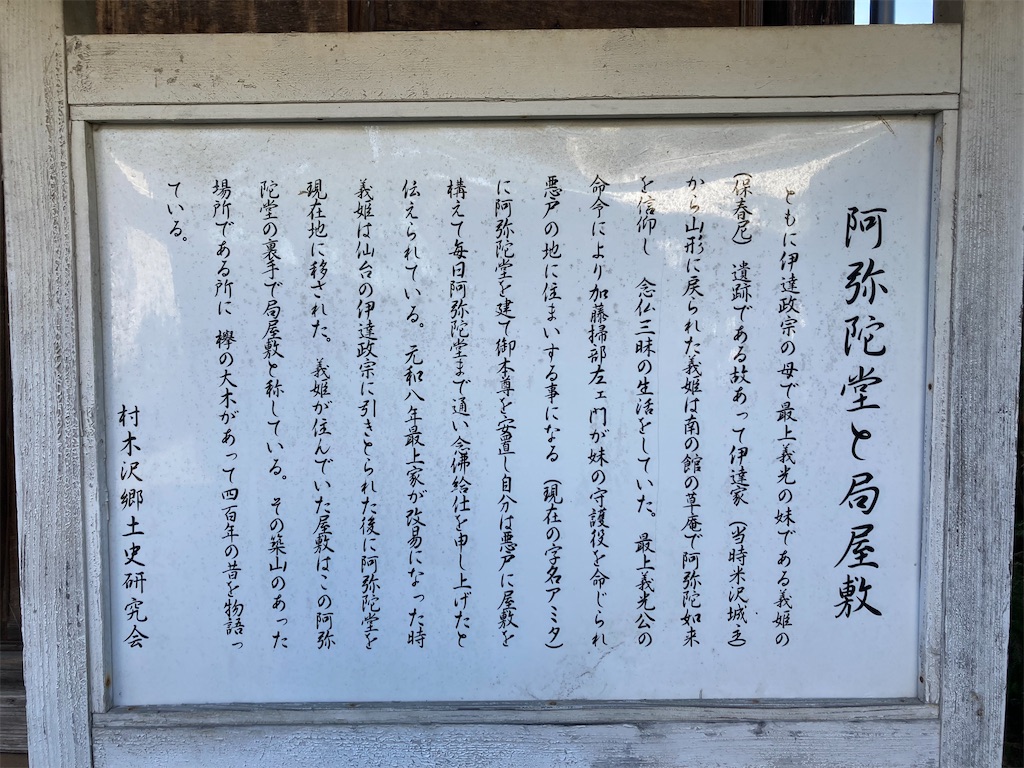 阿弥陀堂と局屋敷
ともに伊達政宗の母で最上義光の妹である義姫の
(保春尼) 遺跡である故あって伊達家(当時米沢城主)
から山形に戻られた義姫は南の館の草庵で阿弥陀如来
を信仰し 念仏三昧の生活をしていた。最上義光公の
命令により加藤掃部左ェ門が妹の守護役を命じられ
悪戸の地に住まいする事になる(現在の字名アミタ)
に阿弥陀堂を建て御本尊を安置し自分は悪戸に屋敷を
構えて毎日阿弥陀堂まで通い念佛給仕を申し上げたと
伝えられている。元和八年最上家が改易になった時
義姫は仙台の伊達政宗に引きとられた後に阿弥陀堂を
現在地に移された。義姫が住んでいた屋敷はこの阿弥
陀堂の裏手で局屋敷と称している。その築山のあった
場所である所に 欅の大木があって四百年の昔を物語っ
ている。
村木沢郷土史研究会